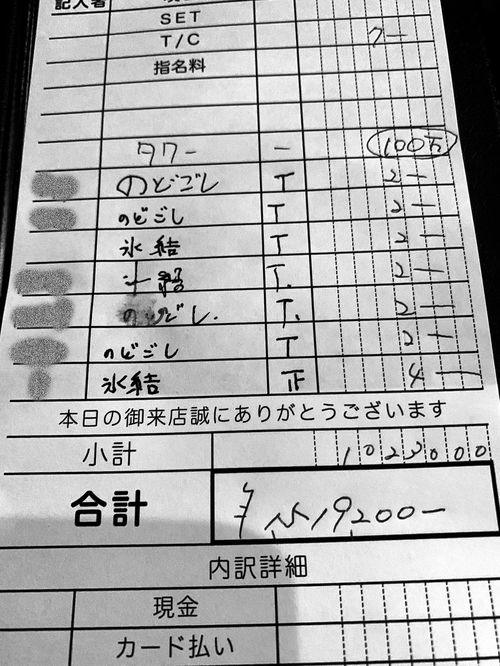 記入者
SET
T/C 7ー
指名料
タワー ー 100万
のどごし T 2ー
のどごし T 2ー
氷結 T 2ー
氷結 T. 2ー
のどごし. T. 2ー
のどごし T 2ー
氷結 正 4ー
本日の御来店誠にありがとうございます
小計 1023000
合計 ¥1,519,200ー
内訳詳細
現金
カード払い